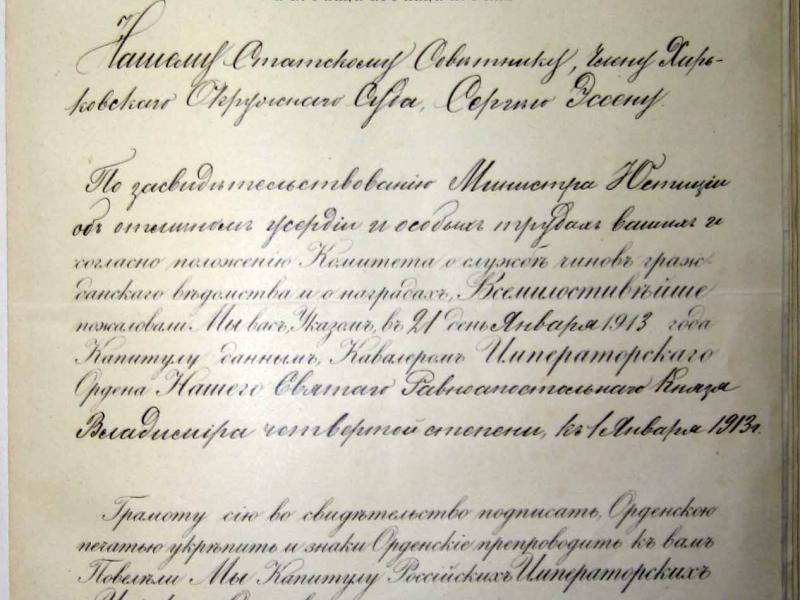 Нашему Статскому Совѣтнику, Члену Харь-
ковскаго Окружнаго Суда, Сергѣю Эссену.
По засвидѣтельствованію Министра Юстиціи
объ отличномъ усердіи и особыхъ трудахъ вашихъ и
согласно положенію Комитета о службѣ чиновъ граж-
данскаго вѣдомства и о наградахъ, Всемилостивѣйше
пожаловали Мы васъ, Указомъ, въ 21 день Января 1913 года
Капитулу даннымъ, Кавалеромъ Императорскаго
Ордена Нашего Святаго Равноапостольнаго Князя
Владиміра четвертой степени, къ 1 Января 1913 г.
Грамоту сію во свидѣтельство подписать, Орденскою
печатью укрѣпить и знаки Орденскіе препроводить къ вамъ
Повелѣли Мы Капитулу Россійскихъ Императорскихъ